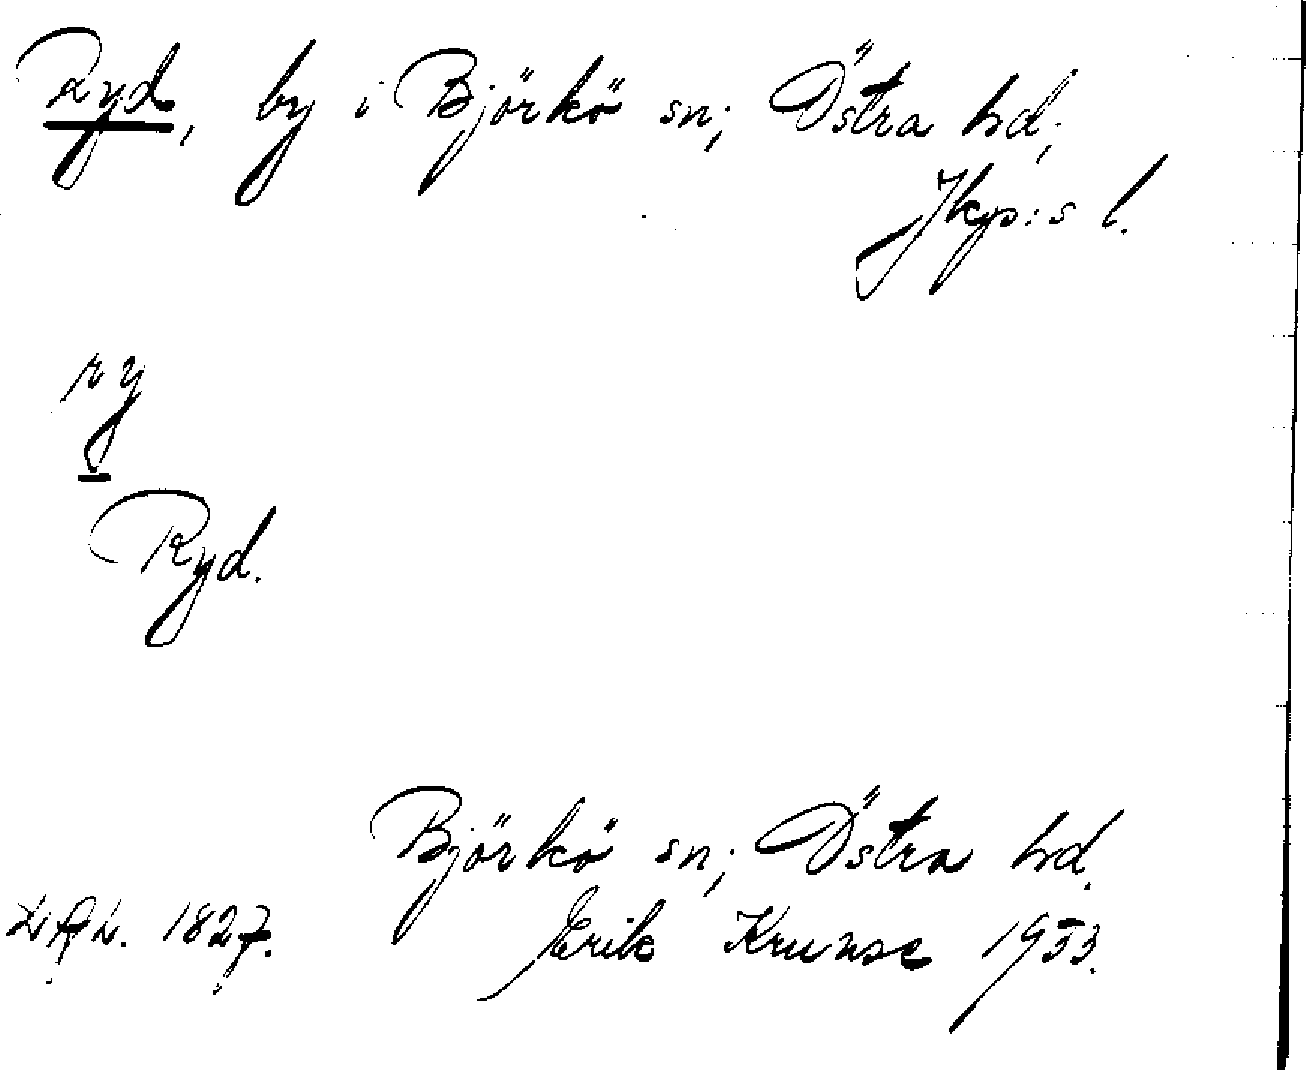 Ryd, by i Björkö sn; Östra hd;
Jkp:s l.
ry
Ryd.
Björkö sn; Östra hd.
1827. Erik Krunse 1953.